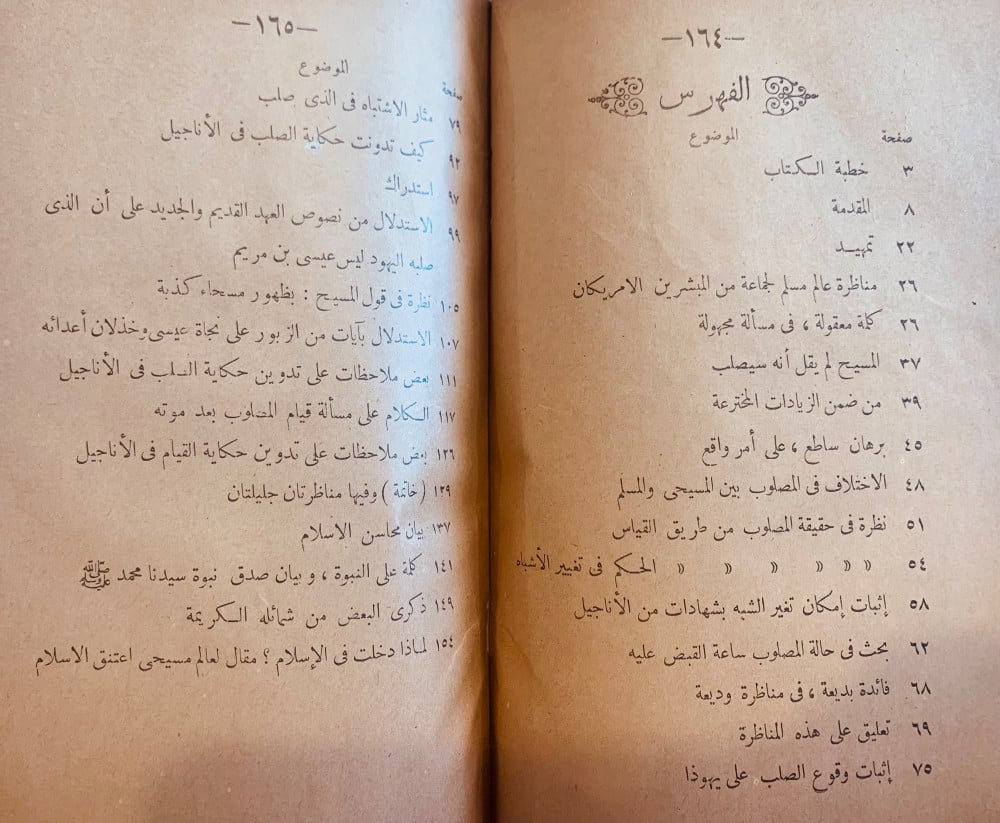 —١٦٤—
الفهرس
صفحة الموضوع
٣ خطبة الكتاب
٨ المقدمة
٢٢ تمهيد
٢٦ مناظرة عالم مسلم لجماعة من المبشرين الامريكان
٢٦ كلمة معقولة ، فى مسألة مجهولة
٣٧ المسيح لم يقل أنه سيصلب
٣٩ من ضمن الزيادات المخترعة
٤٥ برهان ساطع ، على أمر واقع
٤٨ الاختلاف فى المصلوب بين المسيحى والمسلم
٥١ نظرة فى حقيقة المصلوب من طريق القياس
٥٤ » » » » » » الحكم فى تغيير الأشباه
٥٨ إثبات إمكان تغير الشبه بشهادات من الأناجيل
٦٢ بحث فى حالة المصلوب ساعة القبض عليه
٦٨ فائدة بديعة ، فى مناظرة وديعة
٦٩ تعليق على هذه المناظرة
٧٥ إثبات وقوع الصلب على يهوذا
—١٦٥—
صفحة الموضوع
٧٩ مثار الاشتباه فى الذى صلب
٩٢ كيف تدونت حكاية الصلب فى الأناجيل
٩٧ استدراك
٩٩ الاستدلال من نصوص العهد القديم والجديد على أن الذى
صلبه اليهود ليس عيسى بن مريم
١٠٥ نظرة فى قول المسيح : بظهور مسحاء كذبة
١٠٧ الاستدلال بآيات من الزبور على نجاة عيسى وخذلان أعدائه
١١١ بعض ملاحظات على تدوين حكاية الصلب فى الأناجيل
١١٧ الكلام على مسألة قيام المصلوب بعد موته
١٢٦ بعض ملاحظات على تدوين حكاية القيام فى الأناجيل
١٢٩ (خاتمة) وفيها مناظرتان جليلتان
١٣٧ بيان محاسن الاسلام
١٤١ كلمة على النبوة ، و بيان صدق نبوة سيدنا محمد ﷺ
١٤٩ ذكرى البعض من شمائله الكريمة
١٥٤ لماذا دخلت فى الإسلام ؟ مقال لعالم مسيحى اعتنق الاسلام